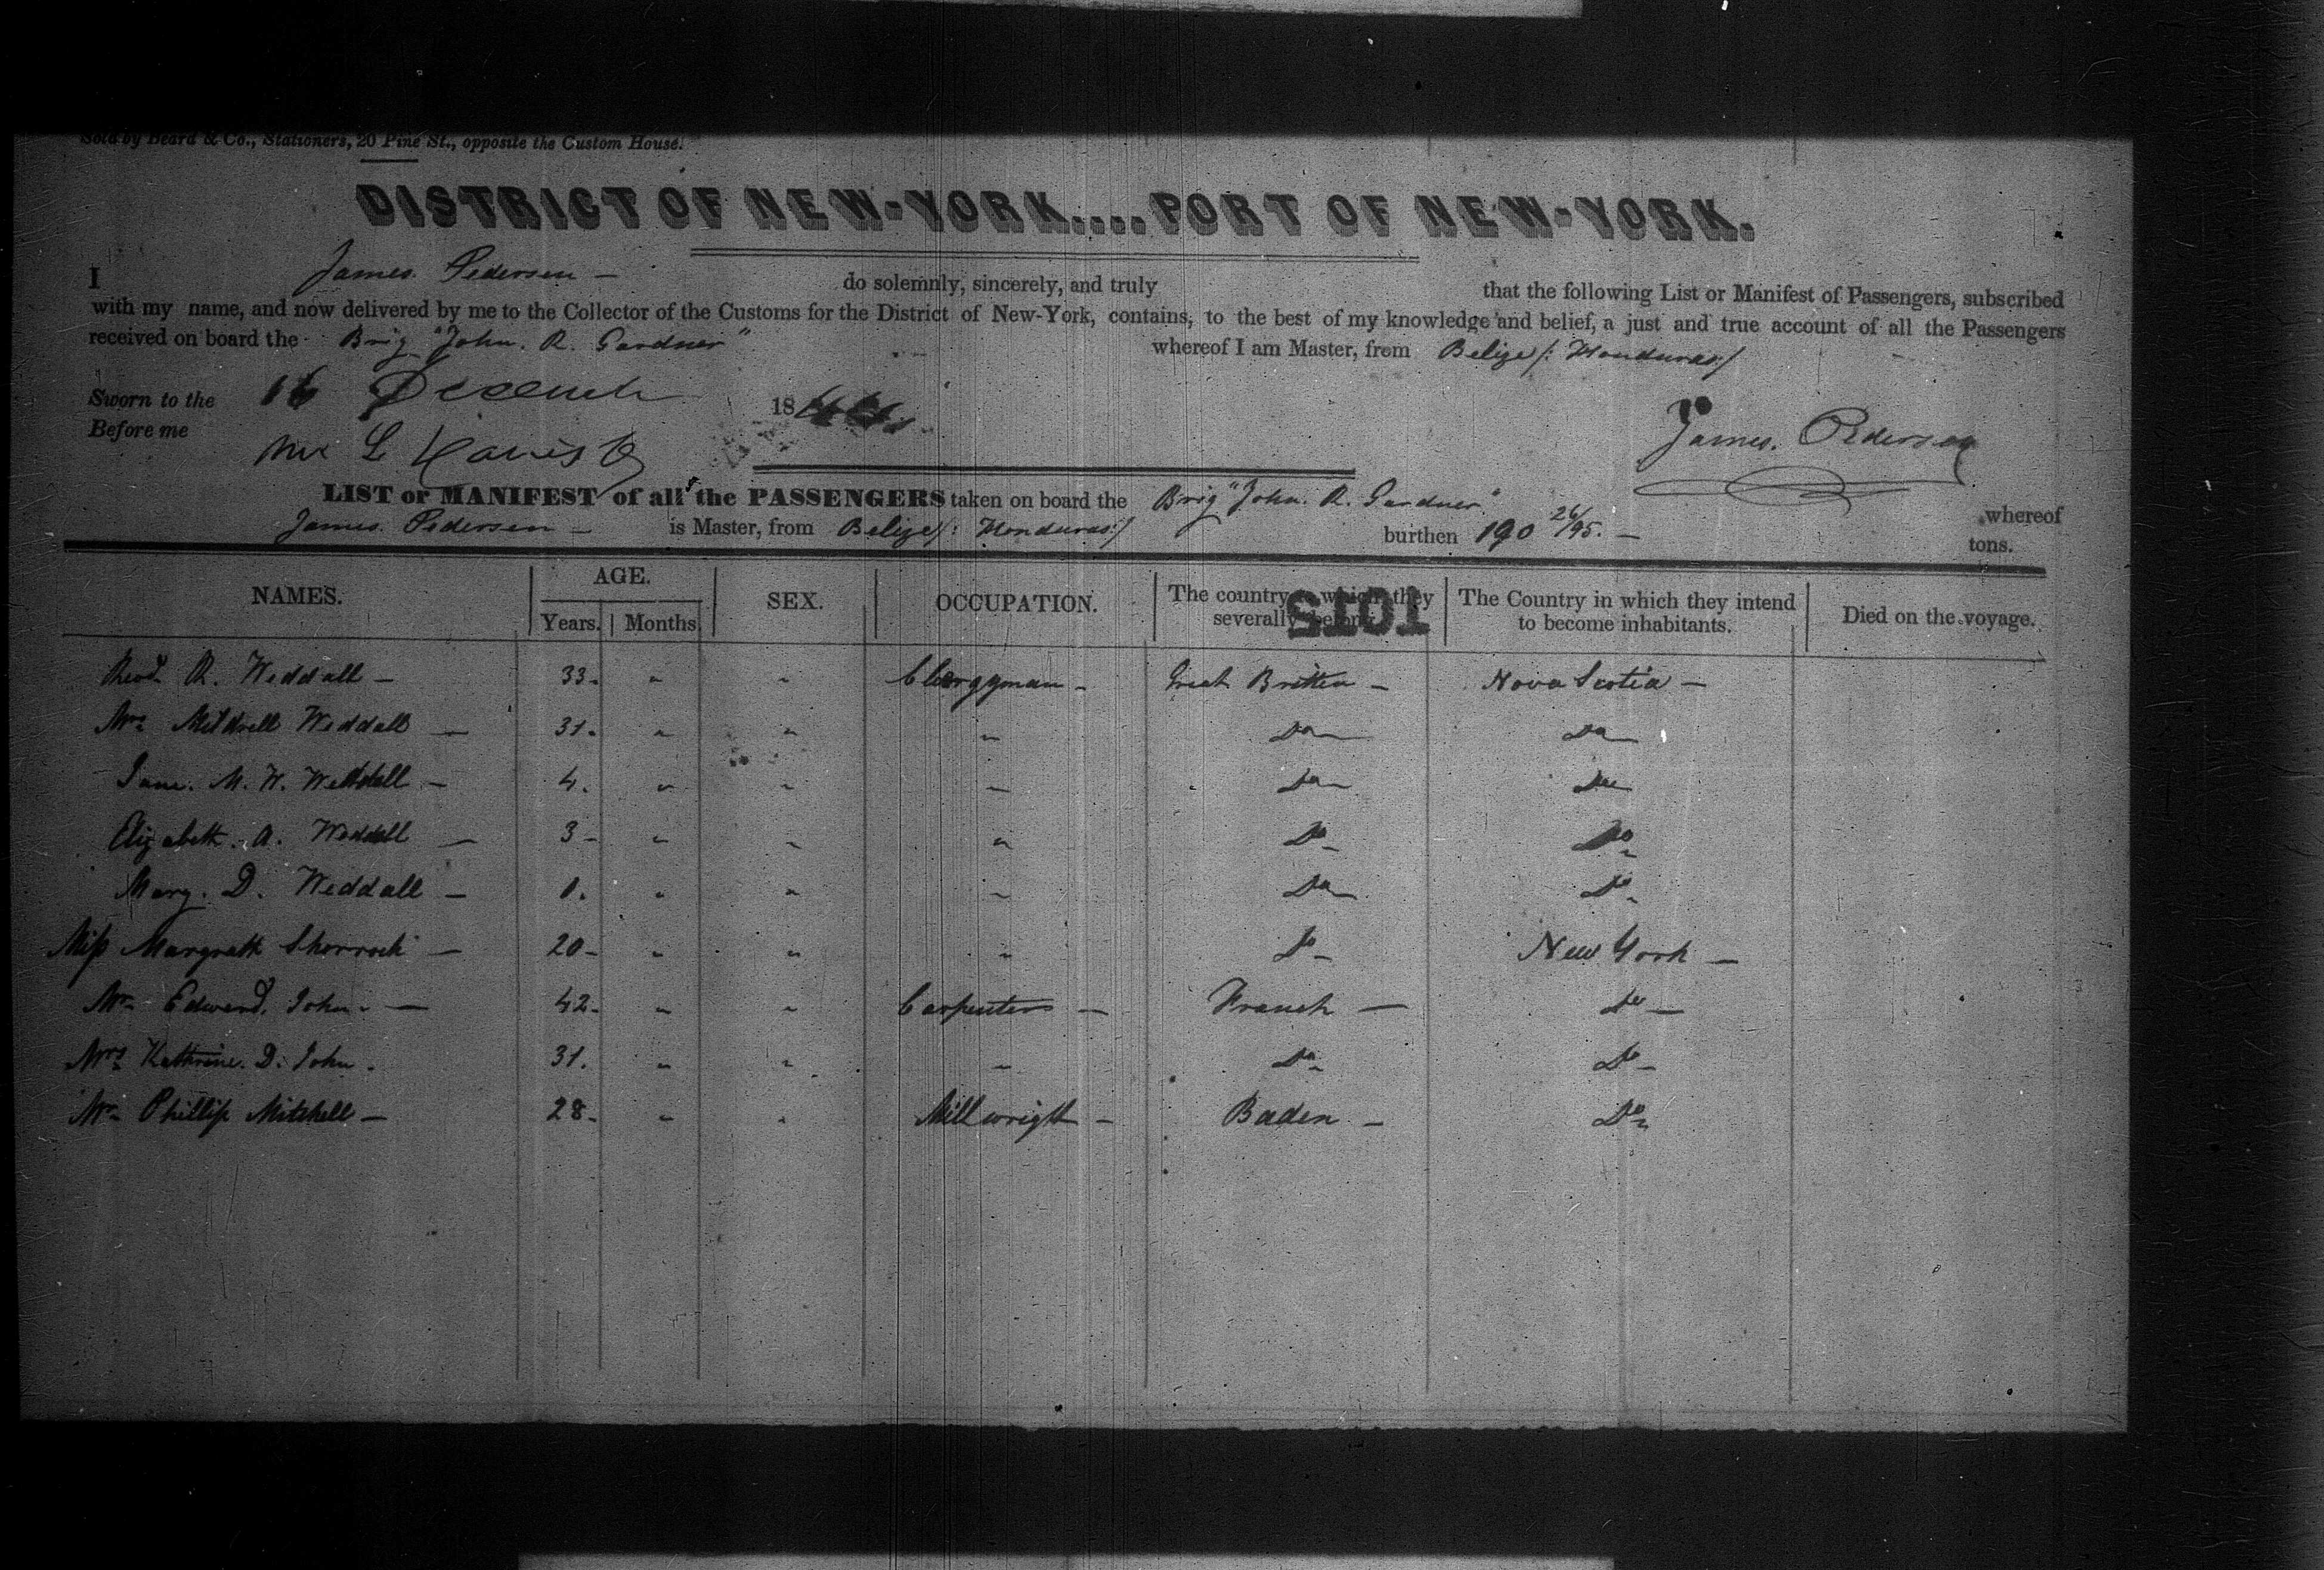 Sold by Beard & Co., Stationers, 20 Pine St., opposite the Custom House.
DISTRICT OF NEW-YORK....PORT OF NEW-YORK.
I James. Pedersen — do solemnly, sincerely, and truly that the following List or Manifest of Passengers, subscribed
with my name, and now delivered by me to the Collector of the Customs for the District of New-York, contains, to the best of my knowledge and belief, a just and true account of all the Passengers
received on board the Brig "John. R. Gardner" whereof I am Master, from Belize /: Honduras:/
Sworn to the 16 18
Before me
James. Pedersen
LIST or MANIFEST of all the PASSENGERS taken on board the Brig "John. R. Gardner" whereof
James. Pedersen — is Master, from Belize /: Honduras:/ burthen 190 26/95. — tons.
NAMES. AGE. Years. Months SEX. OCCUPATION. The country which they severally belong. The Country in which they intend to become inhabitants. Died on the voyage.
1015
Revd. R. Weddall — 33. " " Clergyman - Great Britten — Nova Scotia —
Mrs Mildrell Weddall — 31. " " " Do Do
Jane. M. W. Weddall — 4. " " " Do Do
Elizabeth. A. Weddall — 3 - " " " Do Do
Mary. D. Weddall — 1. " " " Do Do
Miss Margrath Shorrock — 20 - " " " Do New York —
Mr Edward. John - — 42 - " " Carpenter — Franch — Do —
Mrs Kathrine. D. John . 31. " " " Do Do
Mr Phillip Mitchell — 28 - " " Millwright — Baden — Do